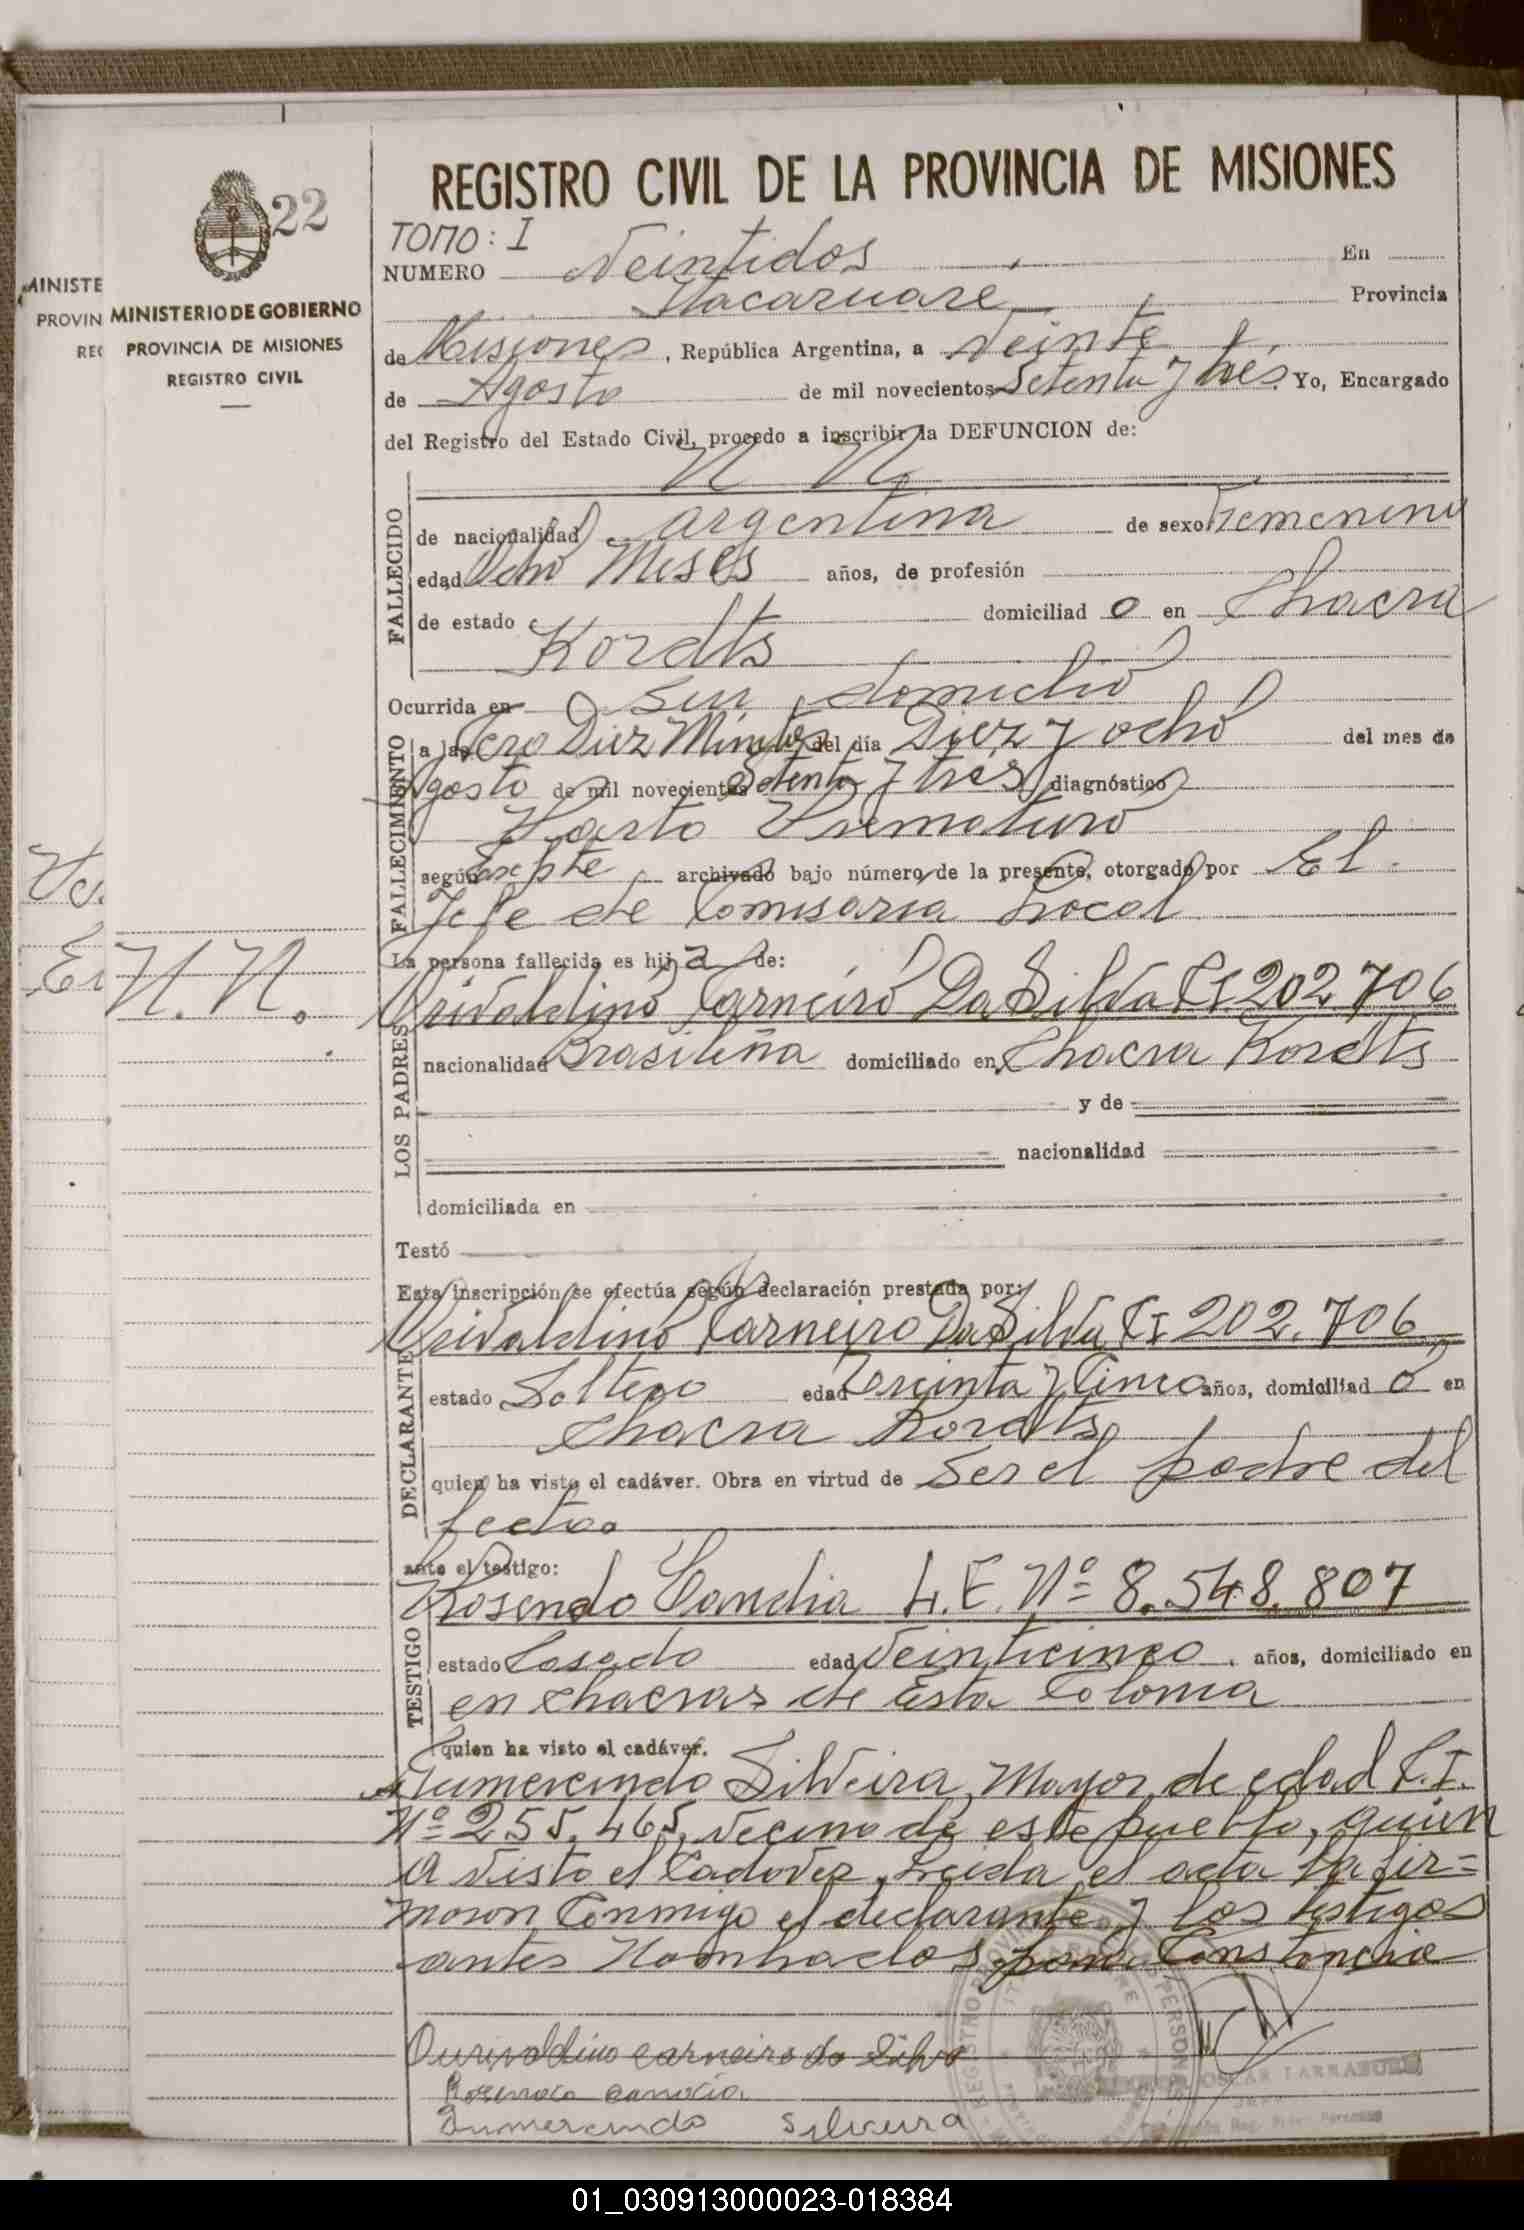 REGISTRO CIVIL DE LA PROVINCIA DE MISIONES
22
TOMO: I
NUMERO Veintidos En
Itacaruare Provincia
de Misiones, República Argentina, a Veinte
de Agosto de mil novecientos Setenta y tres. Yo, Encargado
del Registro del Estado Civil, procedo a inscribir la DEFUNCION de:
N N
MINISTE
PROVIN
REG
MINISTERIO DE GOBIERNO
PROVINCIA DE MISIONES
REGISTRO CIVIL
N. N.
FALLECIDO
de nacionalidad argentina de sexo Femenino
edad Ocho Meses años, de profesión
de estado domiciliad o en Chacra
Kordts
Ocurrida en su domicilio
FALLECIMIENTO
a las Cero Diez Minutos del día Diez y ocho del mes de
Agosto de mil novecientos Setenta y tres diagnóstico
Parto Prematuro
según archivado bajo número de la presente, otorgado por El
Jefe de Comisaria Local
La persona fallecida es hij a de:
LOS PADRES
Orivaldino Carneiro Da Silva C.I 202.706
nacionalidad Brasileña domiciliado en Chacra Kordts
y de
nacionalidad
domiciliada en
Testó
Esta inscripción se efectúa según declaración prestada por:
DECLARANTE
Orivaldino Carneiro Da Silva C.I 202.706
estado Soltero edad Treinta y Cinco años, domiciliad o en
Chacra Kordts
quien ha visto el cadáver. Obra en virtud de Ser el padre del
fecto
ante el testigo:
TESTIGO
Rosendo Candia L.E. Nº 8.548.807
estado Casado edad Veinticinco, años, domiciliado en
en chacras de Esta Colonia
quien ha visto el cadáver.
Gumercindo Silveira, Mayor de edad C.I.
Nº 255.465, Vecino de este pueblo, quien
a visto el Cadaver, Leida el acta la fir=
maron Conmigo el declarante y los testigos
antes Nombrados para Constancia
Ourivaldino carneiro da Silva
Rosendo candia
Gumercindo Silveira
OSCAR TARRAGUEL
01_030913000023-018384